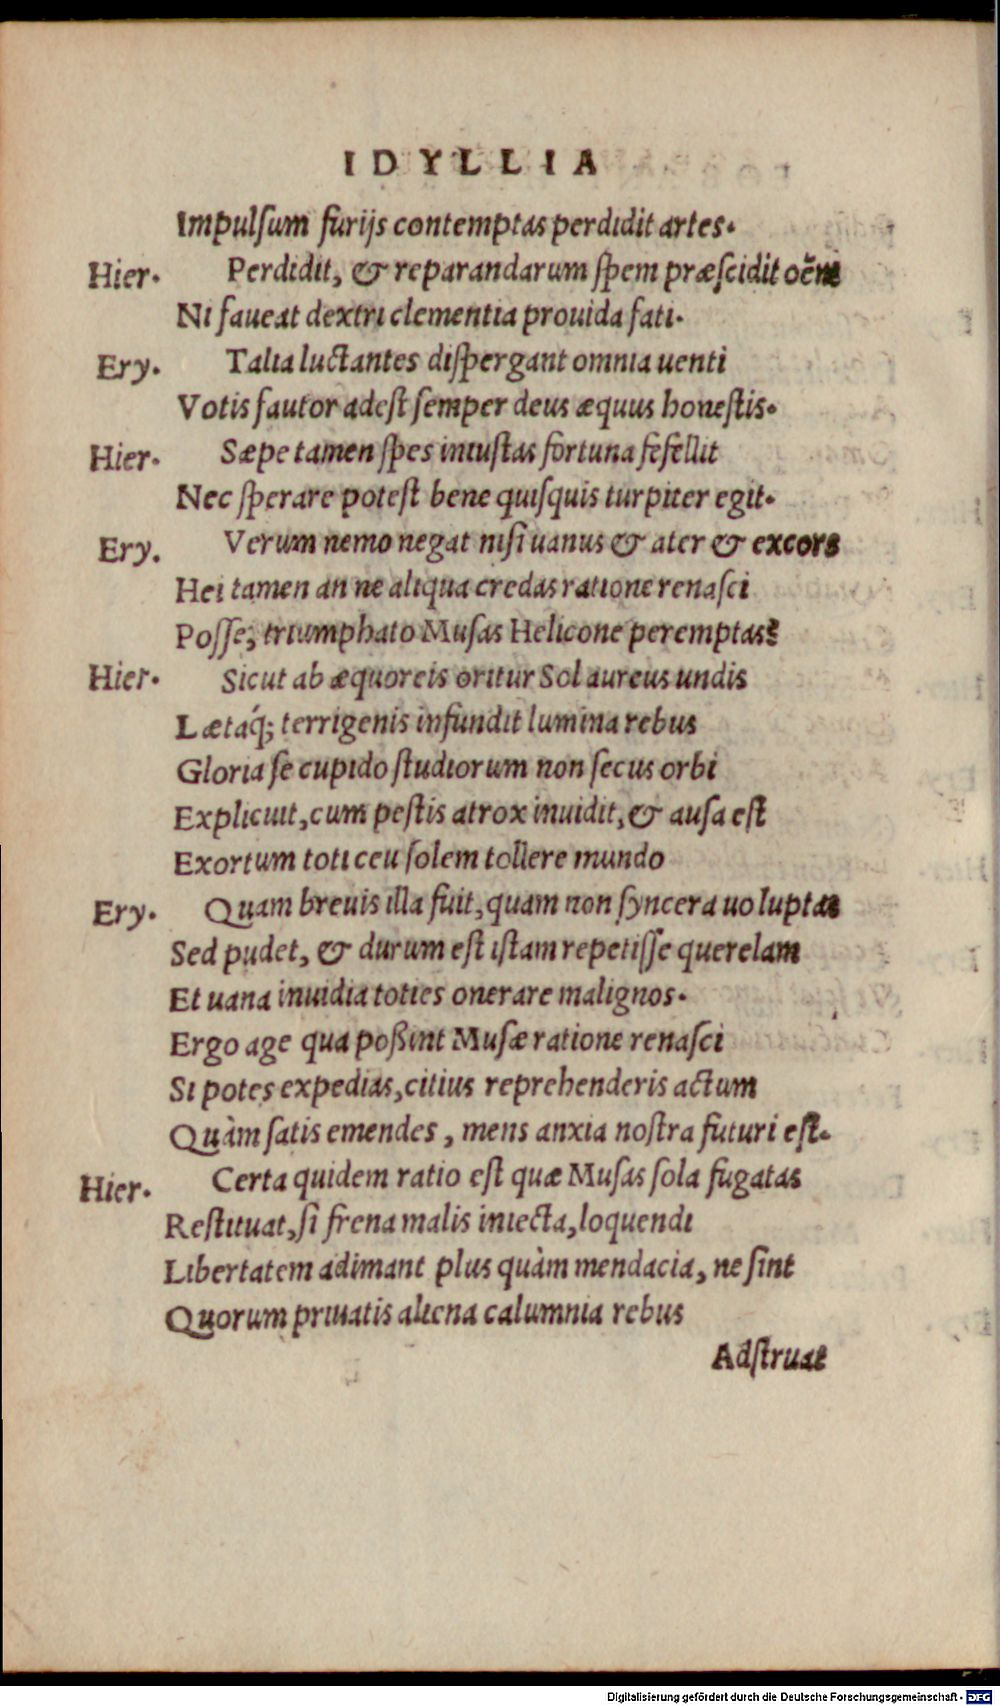 IDYLLIA
Impulſum furijs contemptas perdidit artes.
Hier. Perdidit, & reparandarum ſpem præſcidit oẽm
Ni faueat dextri clementia prouida fati.
Ery. Talia luctantes diſpergant omnia uenti
Votis fautor adeſt ſemper deus æquus honeſtis.
Hier. Sæpe tamen ſpes iniuſtas fortuna fefellit
Nec ſperare poteſt bene quiſquis turpiter egit.
Ery. Verum nemo negat niſi uanus & ater & excors
Hei tamen an ne aliqua credas ratione renaſci
Poſſe, triumphato Muſas Helicone peremptas?
Hier. Sicut ab æquoreis oritur Sol aureus undis
Lætaq́; terrigenis infundit lumina rebus
Gloria ſe cupido ſtudiorum non ſecus orbi
Explicuit, cum peſtis atrox inuidit, & auſa eſt
Exortum toti ceu ſolem tollere mundo
Ery. Quam breuis illa fuit, quam non ſyncera uoluptas
Sed pudet, & durum eſt iſtam repetiſſe querelam
Et uana inuidia toties onerare malignos.
Ergo age qua poßint Muſæ ratione renaſci
Si potes expedias, citius reprehenderis actum
Quàm ſatis emendes, mens anxia noſtra futuri eſt.
Hier. Certa quidem ratio eſt quæ Muſas ſola fugatas
Reſtituat, ſi frena malis iniecta, loquendi
Libertatem adimant plus quàm mendacia, ne ſint
Quorum priuatis aliena calumnia rebus
Adſtruat
Digitalisierung gefördert durch die Deutsche Forschungsgemeinschaft - DFG